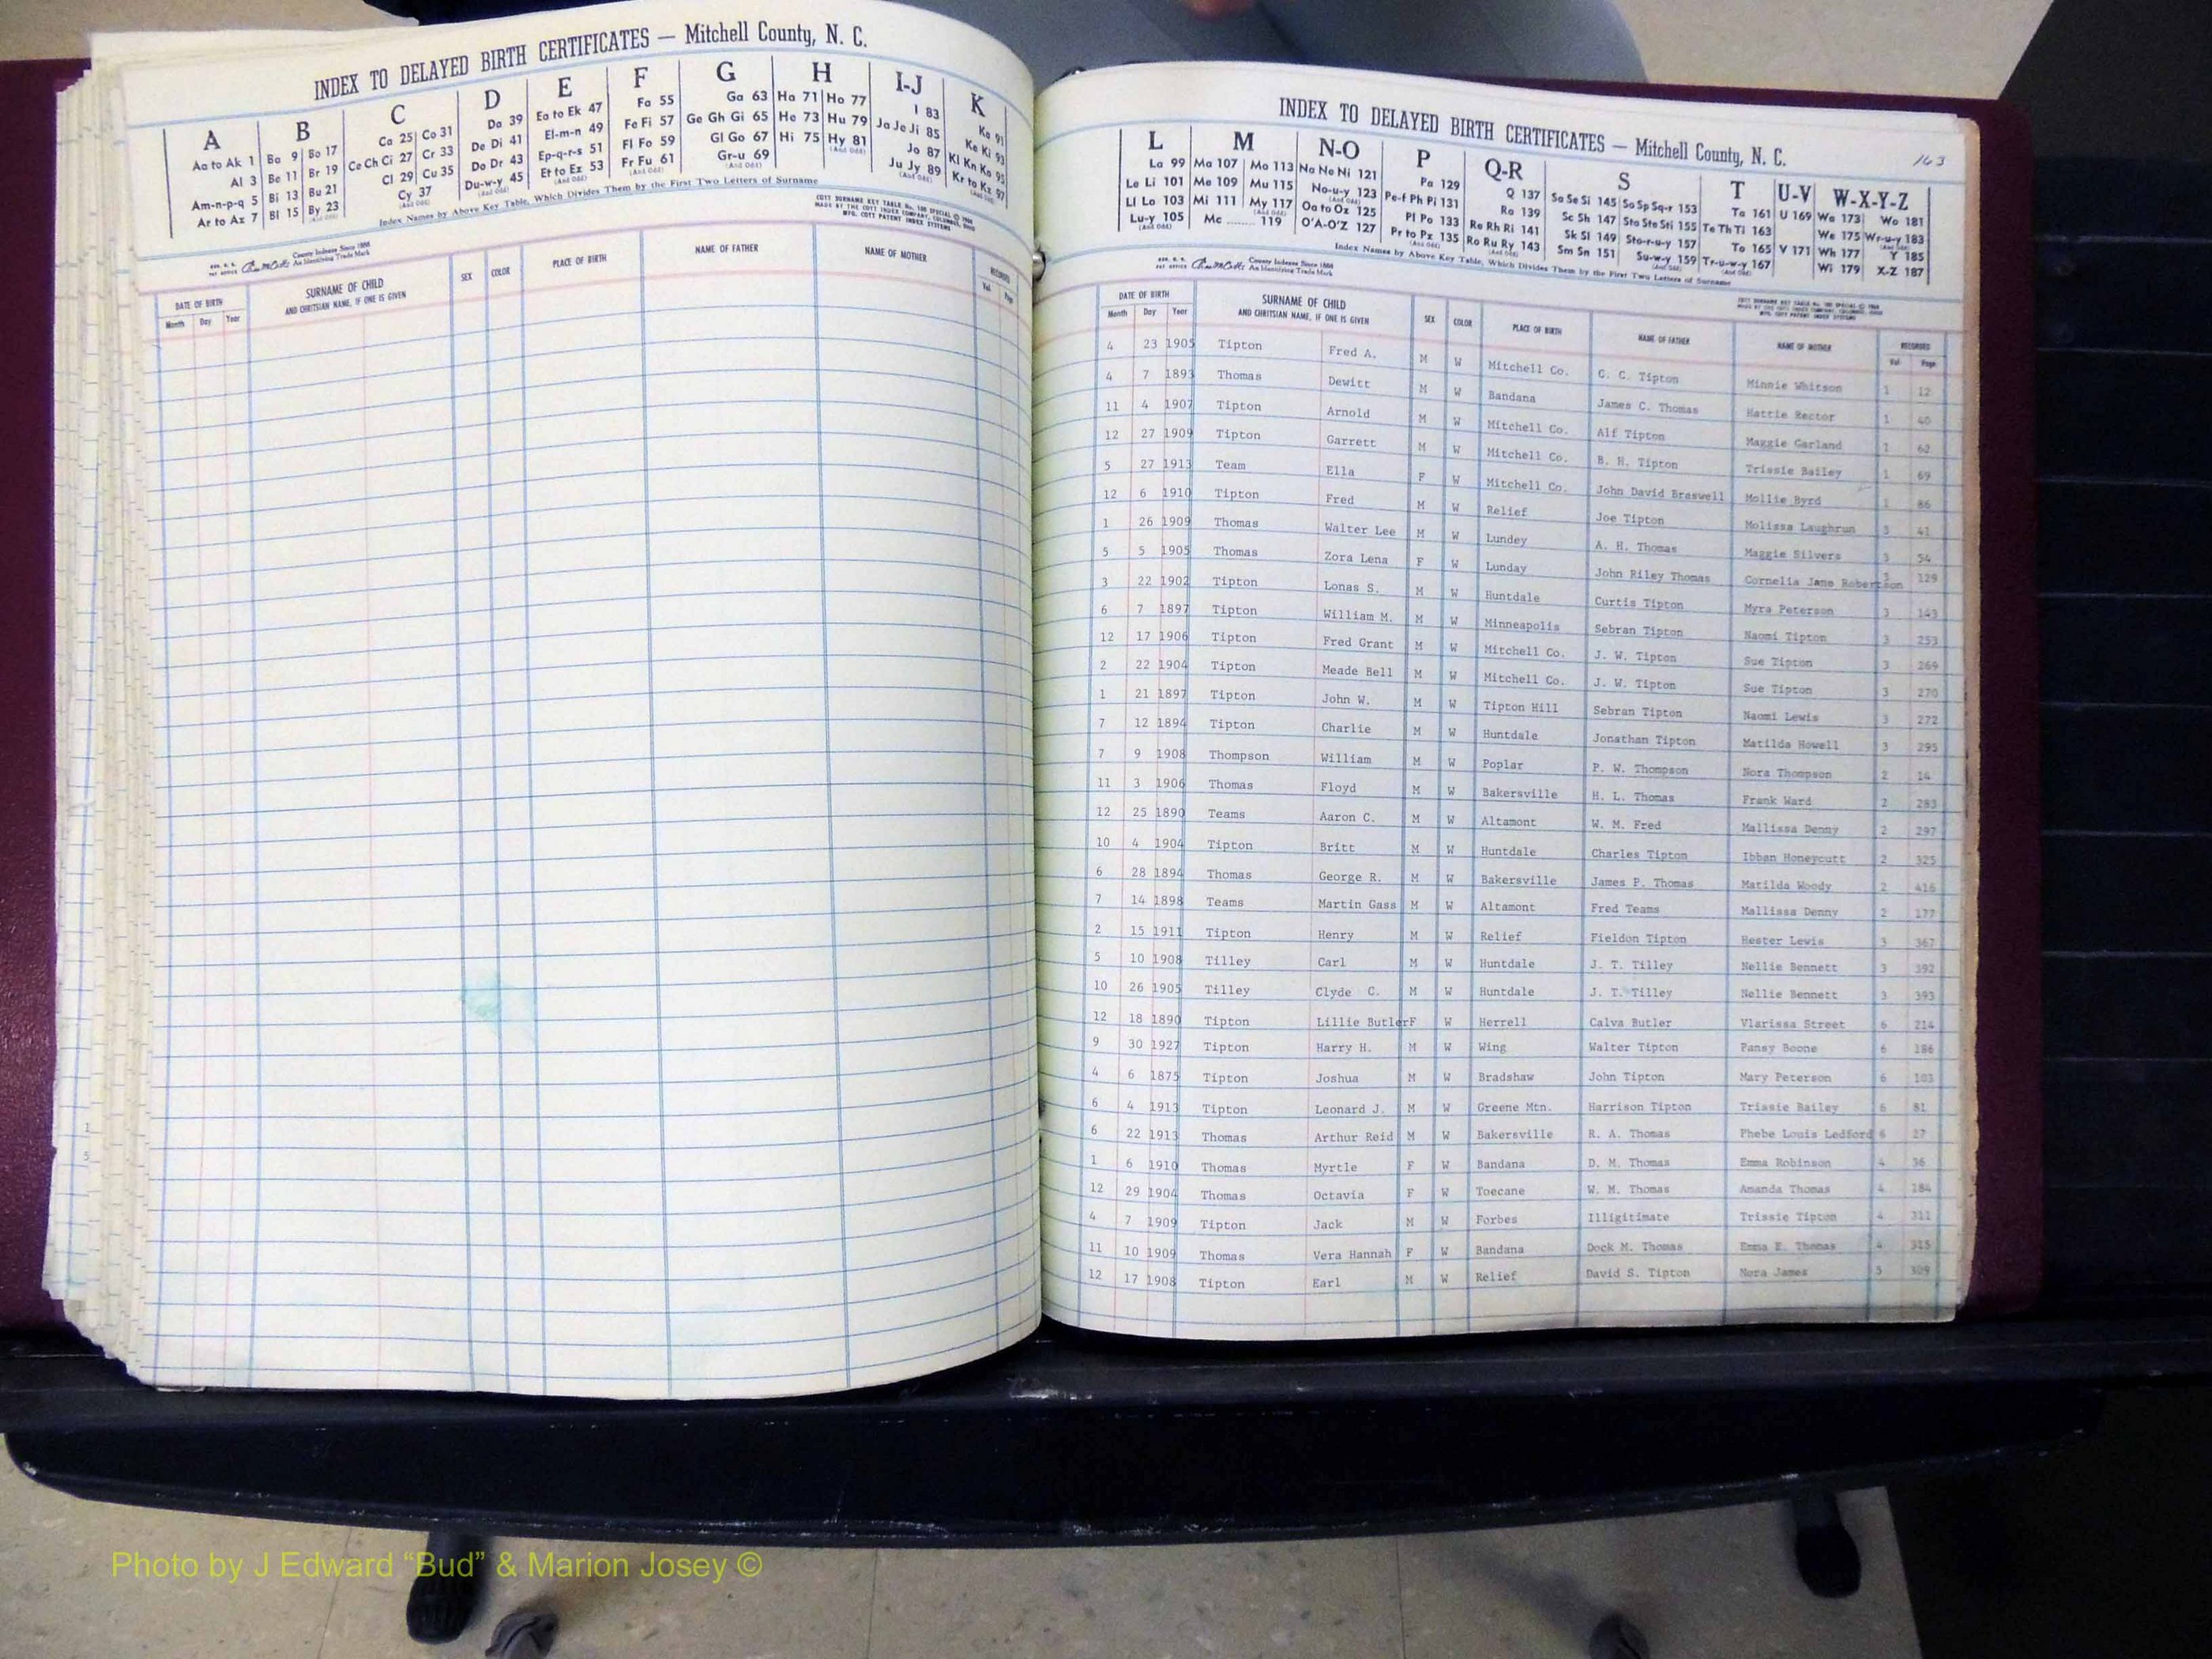 INDEX TO DELAYED BIRTH CERTIFICATES — Mitchell County, N. C.
A B C D E F G H I-J K
Aa to Ak 1 Ba 9 Bo 17 Ca 25 Co 31 Da 39 Ea to Ek 47 Fa 55 Ga 63 Ha 71 Ho 77 I 83 Ka 91
Al 3 Be 11 Br 19 Ce Ch Ci 27 Cr 33 De Di 41 El-m-n 49 Fe Fi 57 Ge Gh Gi 65 He 73 Hu 79 Ja Je Ji 85 Ke Ki 93
Am-n-p-q 5 Bi 13 Bu 21 Cl 29 Cu 35 Do Dr 43 Ep-q-r-s 51 Fl Fo 59 Gl Go 67 Hi 75 Hy 81 Jo 87 Kl Kn Ko 95
Ar to Az 7 Bl 15 By 23 Cy 37 Du-w-y 45 Et to Ez 53 Fr Fu 61 Gr-u 69 Ju Jy 89 Kr to Kz 97
Index Names by Above Key Table, Which Divides Them by the First Two Letters of Surname
COTT SURNAME KEY TABLE No. 100 SPECIAL
MADE BY THE COTT INDEX COMPANY, COLUMBUS, OHIO
MFG. COTT PATENT INDEX SYSTEMS
County Indexes Since 1888
An Identifying Trade Mark
DATE OF BIRTH SURNAME OF CHILD SEX COLOR PLACE OF BIRTH NAME OF FATHER NAME OF MOTHER RECORDED
Month Day Year AND CHRITSIAN NAME, IF ONE IS GIVEN Vol. Page
INDEX TO DELAYED BIRTH CERTIFICATES — Mitchell County, N. C.
163
L M N-O P Q-R S T U-V W-X-Y-Z
La 99 Ma 107 Mo 113 Na Ne Ni 121 Pa 129 Q 137 Sa Se Si 145 So Sp Sq-r 153 Ta 161 U 169 Wa 173 Wo 181
Le Li 101 Me 109 Mu 115 No-u-y 123 Pe-f Ph Pi 131 Ra 139 Sc Sh 147 Sta Ste Sti 155 Te Th Ti 163 We 175 Wr-u-y 183
Ll Lo 103 Mi 111 My 117 Oa to Oz 125 Pl Po 133 Re Rh Ri 141 Sk Sl 149 Sto-r-u-y 157 To 165 V 171 Wh 177 Y 185
Lu-y 105 Mc 119 O'A-O'Z 127 Pr to Pz 135 Ro Ru Ry 143 Sm Sn 151 Su-w-y 159 Tr-u-w-y 167 Wi 179 X-Z 187
Index Names by Above Key Table, Which Divides Them by the First Two Letters of Surname
County Indexes Since 1888
An Identifying Trade Mark
COTT SURNAME KEY TABLE No. 100 SPECIAL
MADE BY THE COTT INDEX COMPANY, COLUMBUS, OHIO
MFG. COTT PATENT INDEX SYSTEMS
DATE OF BIRTH SURNAME OF CHILD SEX COLOR PLACE OF BIRTH NAME OF FATHER NAME OF MOTHER RECORDED
Month Day Year AND CHRITSIAN NAME, IF ONE IS GIVEN Vol. Page
4 23 1905 Tipton Fred A. M W Mitchell Co. C. C. Tipton Minnie Whitson 1 12
4 7 1893 Thomas Dewitt M W Bandana James C. Thomas Hattie Rector 1 40
11 4 1907 Tipton Arnold M W Mitchell Co. Alf Tipton Maggie Garland 1 62
12 27 1909 Tipton Garrett M W Mitchell Co. B. H. Tipton Trissie Bailey 1 69
5 27 1913 Team Ella F W Mitchell Co. John David Braswell Mollie Byrd 1 86
12 6 1910 Tipton Fred M W Relief Joe Tipton Molissa Laughrun 3 41
1 26 1909 Thomas Walter Lee M W Lundey A. H. Thomas Maggie Silvers 3 54
5 5 1905 Thomas Zora Lena F W Lunday John Riley Thomas Cornelia Jane Robertson 3 129
3 22 1902 Tipton Lonas S. M W Huntdale Curtis Tipton Myra Peterson 3 143
6 7 1897 Tipton William M. M W Minneapolis Sebran Tipton Naomi Tipton 3 253
12 17 1906 Tipton Fred Grant M W Mitchell Co. J. W. Tipton Sue Tipton 3 269
2 22 1904 Tipton Meade Bell M W Mitchell Co. J. W. Tipton Sue Tipton 3 270
1 21 1897 Tipton John W. M W Tipton Hill Sebran Tipton Naomi Lewis 3 272
7 12 1894 Tipton Charlie M W Huntdale Jonathan Tipton Matilda Howell 3 295
7 9 1908 Thompson William M W Poplar P. W. Thompson Nora Thompson 2 14
11 3 1906 Thomas Floyd M W Bakersville H. L. Thomas Frank Ward 2 283
12 25 1890 Teams Aaron C. M W Altamont W. M. Fred Mallissa Denny 2 297
10 4 1904 Tipton Britt M W Huntdale Charles Tipton Ibban Honeycutt 2 325
6 28 1894 Thomas George R. M W Bakersville James P. Thomas Matilda Woody 2 416
7 14 1898 Teams Martin Gass M W Altamont Fred Teams Mallissa Denny 2 177
2 15 1911 Tipton Henry M W Relief Fieldon Tipton Hester Lewis 3 367
5 10 1908 Tilley Carl M W Huntdale J. T. Tilley Nellie Bennett 3 392
10 26 1905 Tilley Clyde C. M W Huntdale J. T. Tilley Nellie Bennett 3 393
12 18 1890 Tipton Lillie Butler F W Herrell Calva Butler Vlarissa Street 6 214
9 30 1927 Tipton Harry H. M W Wing Walter Tipton Pansy Boone 6 186
4 6 1875 Tipton Joshua M W Bradshaw John Tipton Mary Peterson 6 103
6 4 1913 Tipton Leonard J. M W Greene Mtn. Harrison Tipton Trissie Bailey 6 81
6 22 1913 Thomas Arthur Reid M W Bakersville R. A. Thomas Phebe Louis Ledford 6 27
1 6 1910 Thomas Myrtle F W Bandana D. M. Thomas Emma Robinson 4 36
12 29 1904 Thomas Octavia F W Toecane W. M. Thomas Amanda Thomas 4 184
4 7 1909 Tipton Jack M W Forbes Illigitimate Trissie Tipton 4 311
11 10 1909 Thomas Vera Hannah F W Bandana Dock M. Thomas Emma E. Thomas 4 315
12 17 1908 Tipton Earl M W Relief David S. Tipton Nora James 5 309
1
5
Photo by J Edward “Bud” & Marion Josey ©